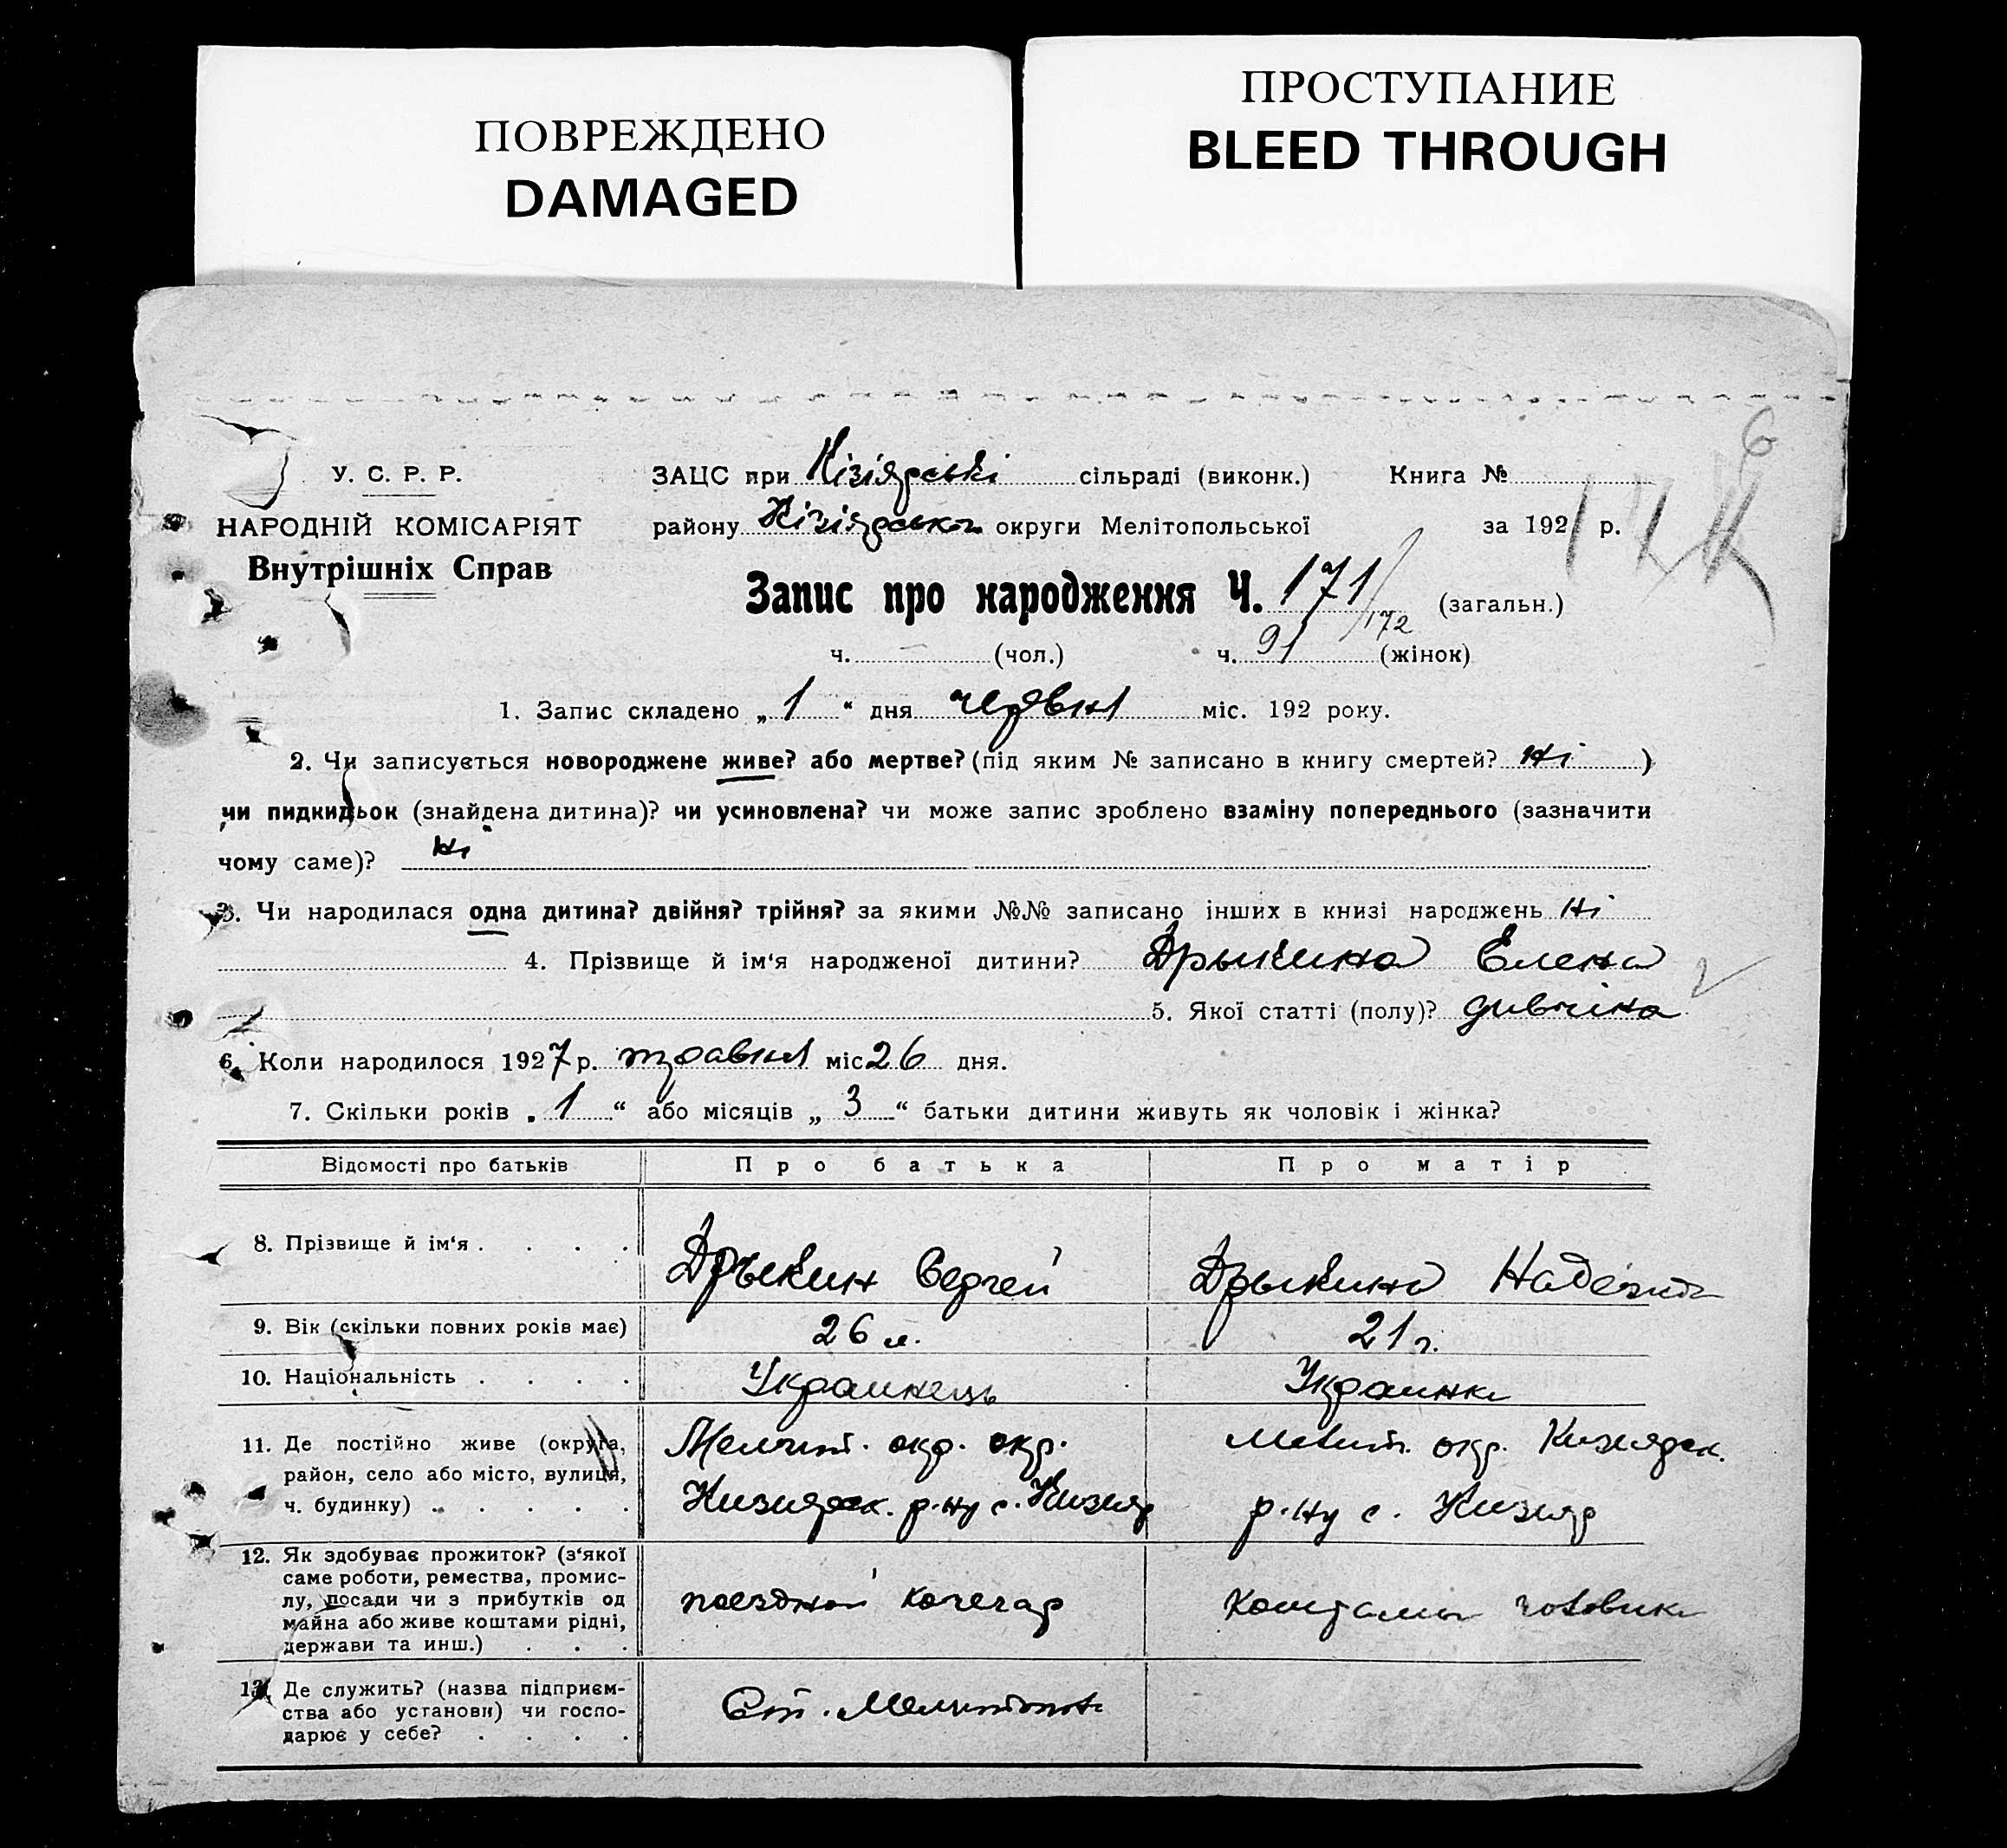 ПОВРЕЖДЕНО
DAMAGED
ПРОСТУПАНИЕ
BLEED THROUGH
6
У. С. Р. Р.
НАРОДНІЙ КОМІСАРІЯТ
Внутрішніх Справ
ЗАЦС при Кізіярські сільраді (виконк.) Книга №
району Кізіярськ округи Мелітопольської за 192 р.
Запис про народження Ч. 171/172 (загальн.)
ч. — (чол.) ч. 91 (жінок)
1. Запис складено „ 1 “ дня червня міс. 192 року.
2. Чи записується новороджене живе? або мертве? (під яким № записано в книгу смертей? Ні )
чи пидкидьок (знайдена дитина)? чи усиновлена? чи може запис зроблено взаміну попереднього (зазначити
чому саме)? Ні
3. Чи народилася одна дитина? двійня? трійня? за якими №№ записано інших в книзі народжень Ні
4. Прізвище й ім‘я народженої дитини? Дрыкина Елена
5. Якої статті (полу)? дивчина
6. Коли народилося 1927 р. травня міс 26 дня.
7. Скільки років „ 1 “ або місяців „ 3 “ батьки дитини живуть як чоловік і жінка?
Відомості про батьків Про батька Про матір
8. Прізвище й ім‘я . . . . Дрыкин Сергей Дрыкина Надежда
9. Вік (скільки повних років має) 26 л. 21 г.
10. Національність . . . . Украинець Украинка
11. Де постійно живе (округа,
район, село або місто, вулиця,
ч. будинку) . . . . .
Мелит. окр. окр.
Кизиярск. р-ну с. Кизияр
Мелит. окр. Кизиярск.
р-ну с. Кизияр
12. Як здобуває прожиток? (з‘якої
саме роботи, ремества, промис-
лу, посади чи з прибутків од
майна або живе коштами рідні,
держави та инш.) . . .
поездной кочегар
Коштами чоловика
13. Де служить? (назва підприєм-
ства або установи) чи госпо-
дарює у себе? . . . .
Ст. Мелитополь